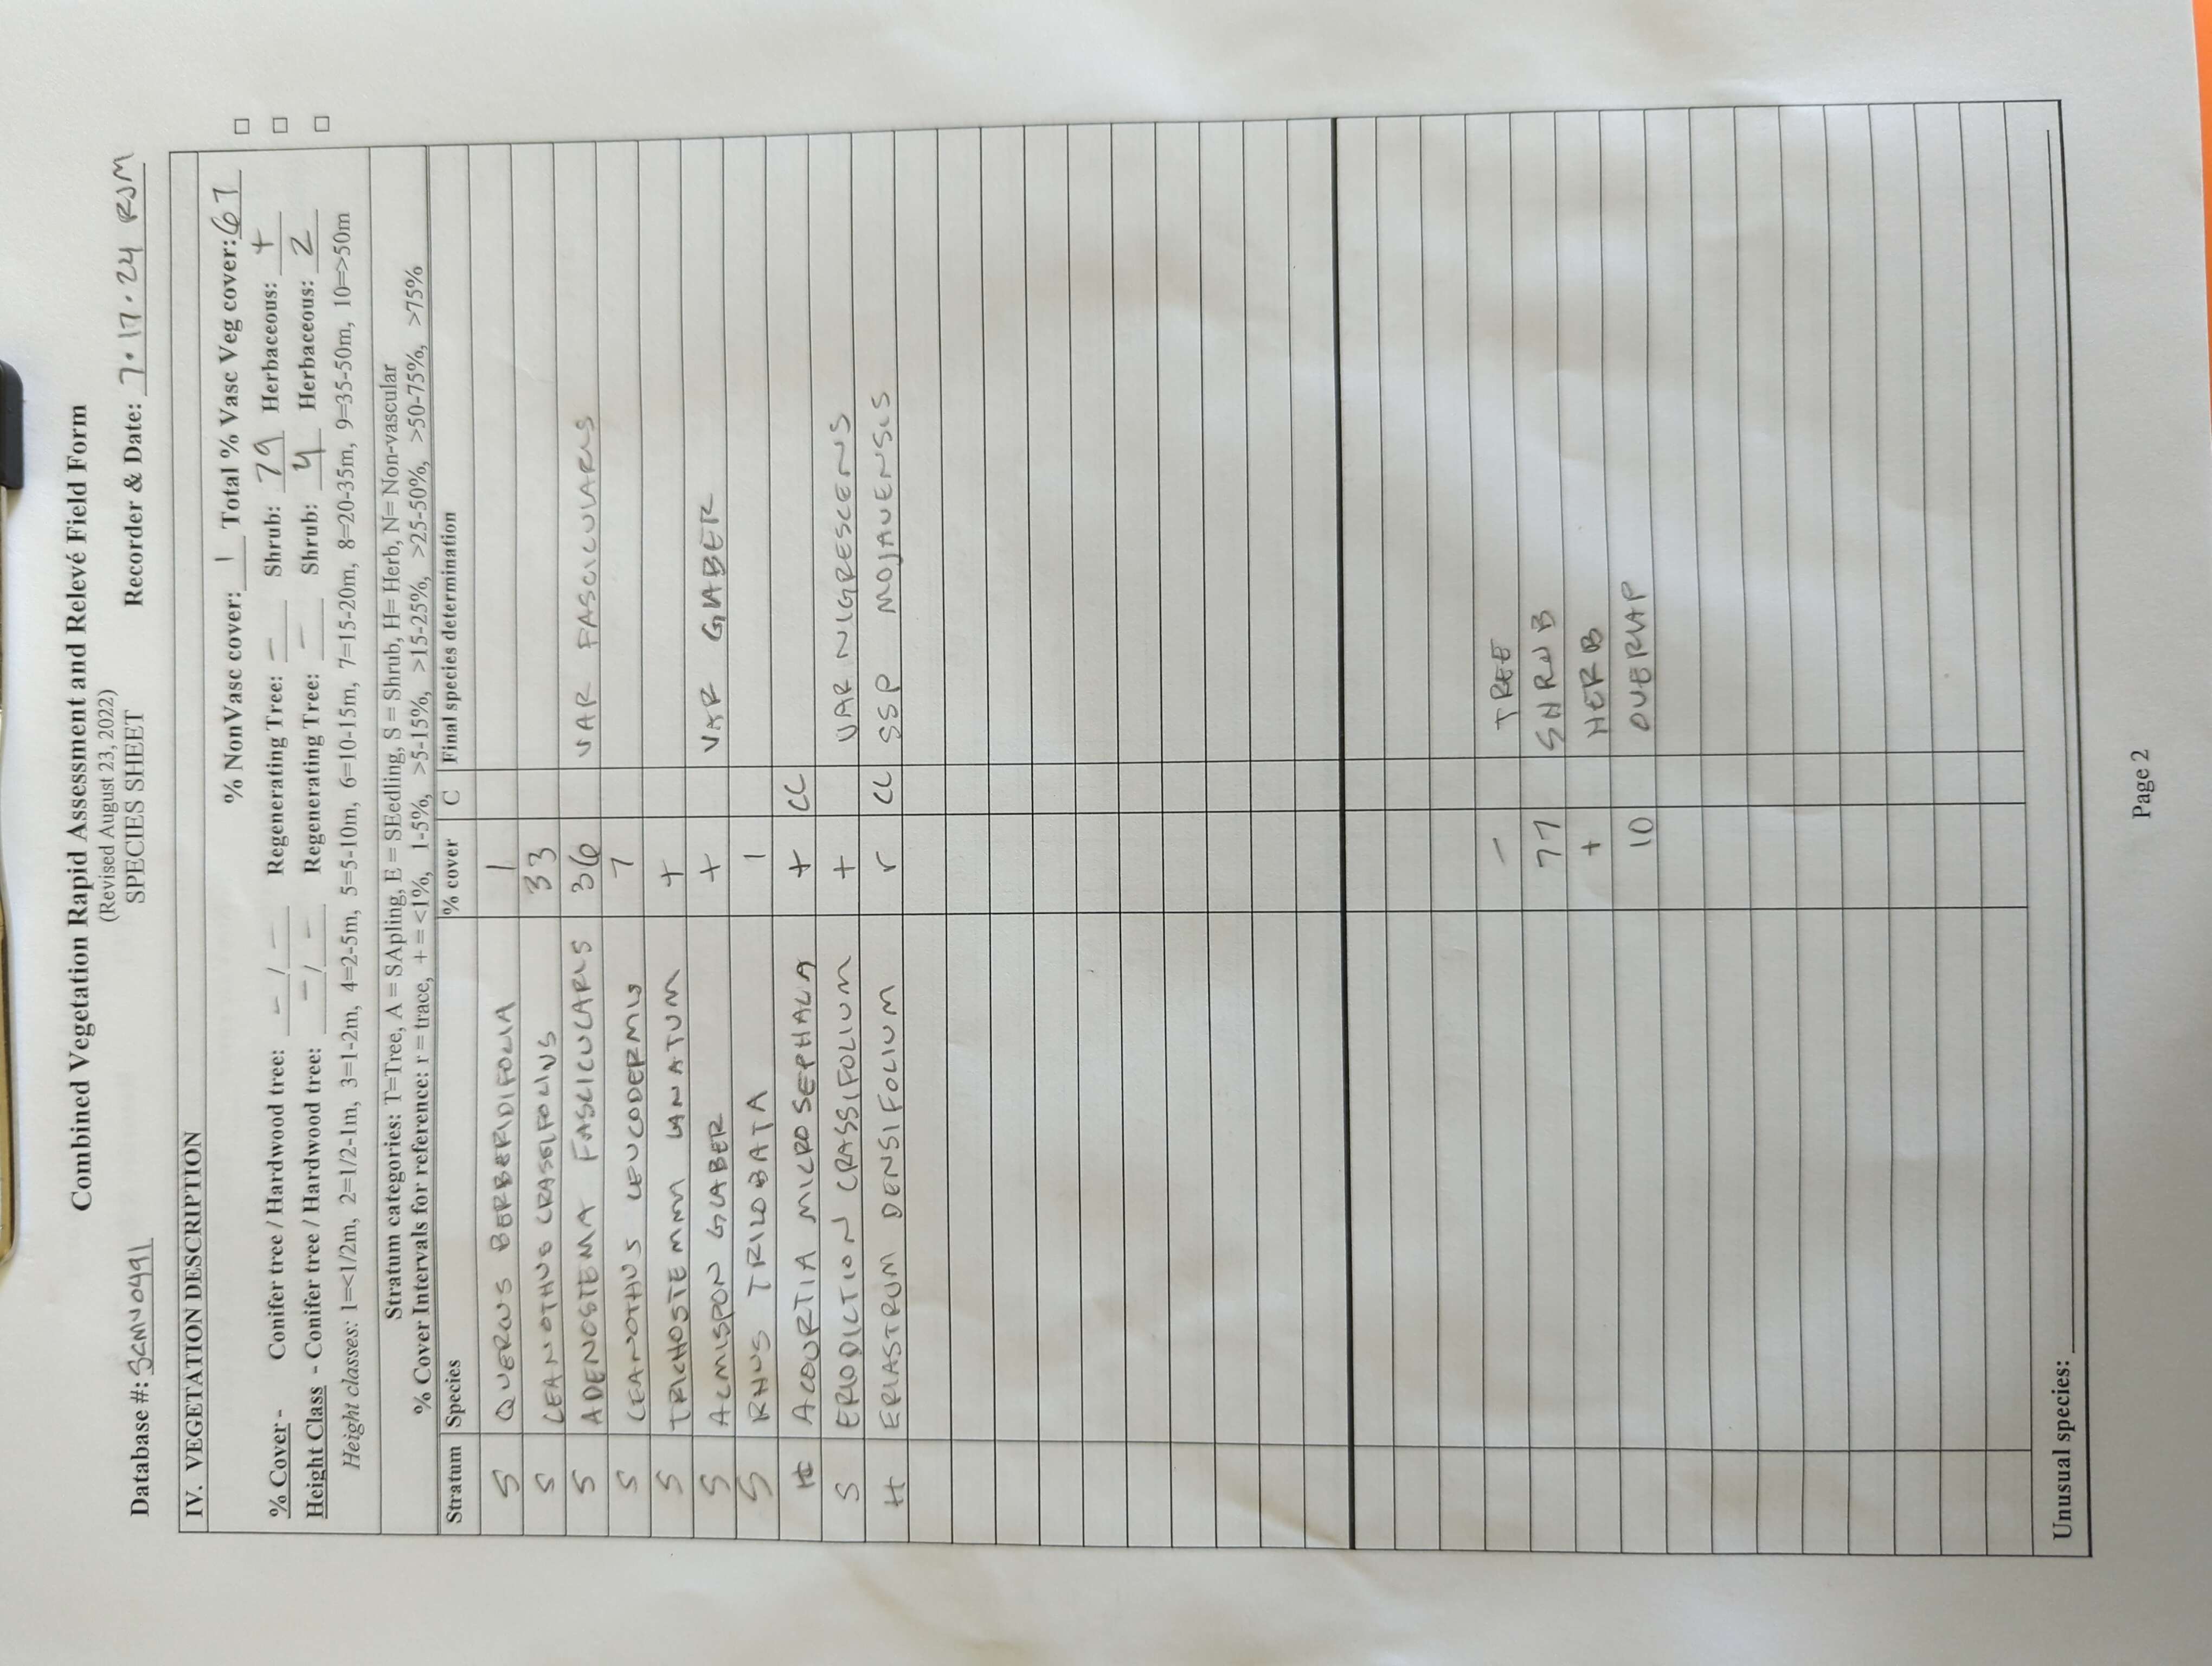 Combined Vegetation Rapid Assessment and Relevé Field Form
(Revised August 23, 2022)
SPECIES SHEET
Database #: SCMV0491 Recorder & Date: 7.17.24 RJM
IV. VEGETATION DESCRIPTION
% NonVasc cover: 1 Total % Vasc Veg cover: 67 □
% Cover - Conifer tree / Hardwood tree: - / - Regenerating Tree: - Shrub: 79 Herbaceous: + □
Height Class - Conifer tree / Hardwood tree: - / - Regenerating Tree: - Shrub: 4 Herbaceous: 2 □
Height classes: 1=<1/2m, 2=1/2-1m, 3=1-2m, 4=2-5m, 5=5-10m, 6=10-15m, 7=15-20m, 8=20-35m, 9=35-50m, 10=>50m
Stratum categories: T=Tree, A = SApling, E = SEedling, S = Shrub, H= Herb, N= Non-vascular
% Cover Intervals for reference: r = trace, + = <1%, 1-5%, >5-15%, >15-25%, >25-50%, >50-75%, >75%
Stratum Species % cover C Final species determination
S QUERCUS BERBERIDIFOLIA 1
S CEANOTHUS CRASSIFOLIUS 33
S ADENOSTEMA FASCICULARIS 36 VAR FASCICULARIS
S CEANOTHUS LEUCODERMIS 7
S TRICHOSTEMMA LANATUM +
S ACMISPON GLABER + VAR GLABER
S RHUS TRILOBATA 1
H ACOURTIA MICROSEPHALA + CC
S ERIODICTION CRASSIFOLIUM + VAR NIGRESCENS
H ERIASTRUM DENSIFOLIUM r CC SSP MOJAVENSIS
- TREE
77 SHRUB
+ HERB
10 OVERLAP
Unusual species:
Page 2